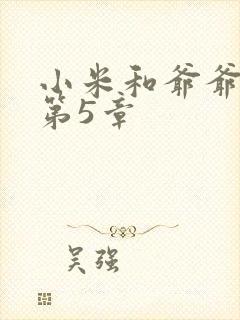 小米和爷爷
第5章
吴强